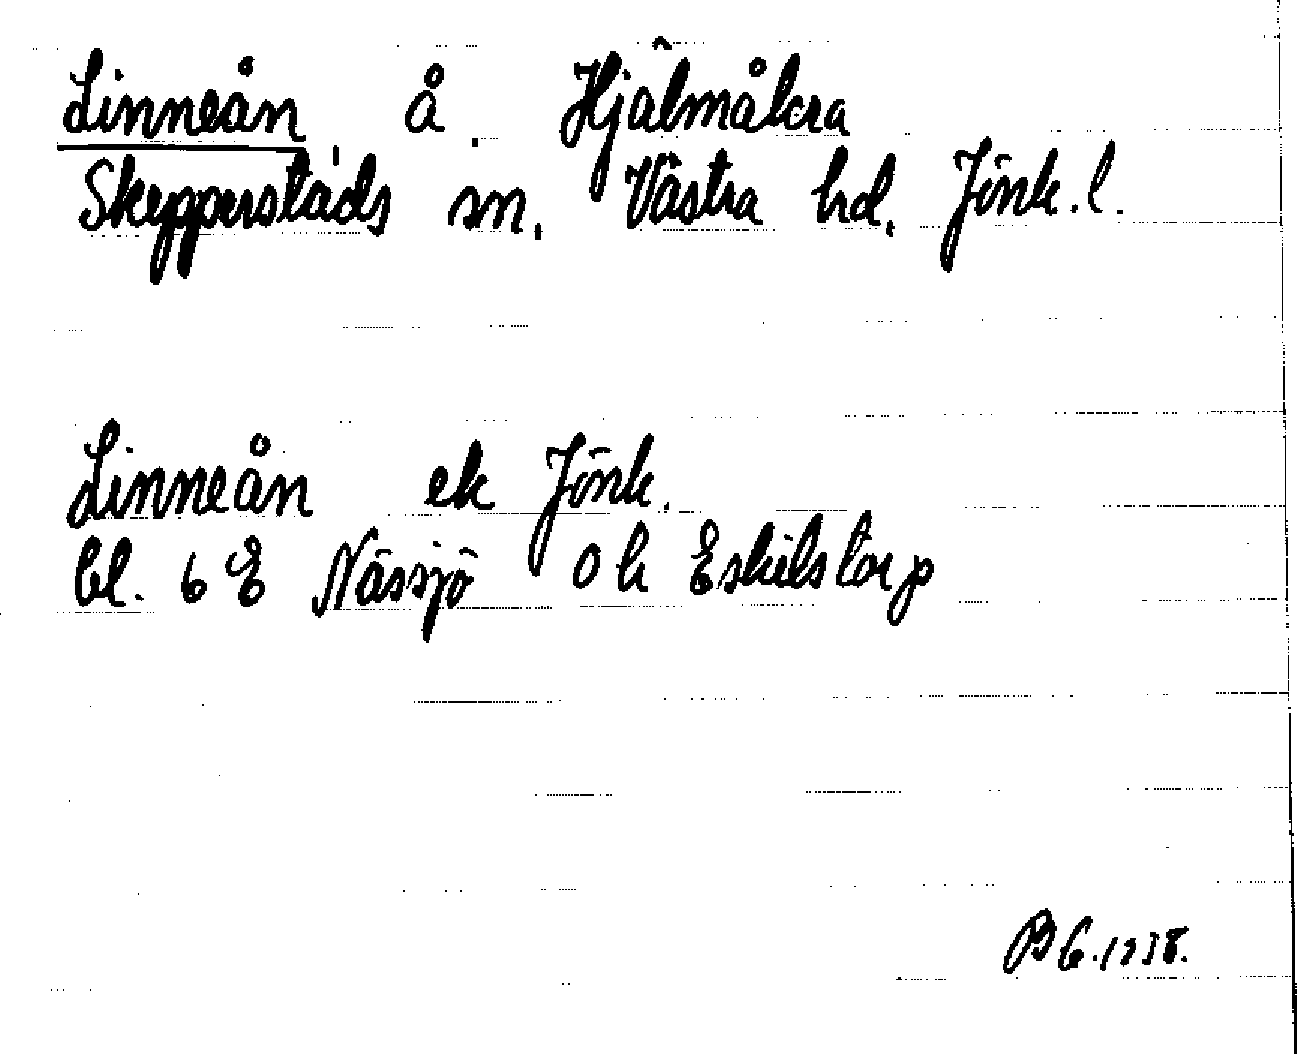 Linneån å. Hjälmåkra
Skepperstads sn. Västra hd. Jönk. l.
Linneån ek Jönk.
bl. 6 E Nässjö o h Eskilstorp
B G. 1938.